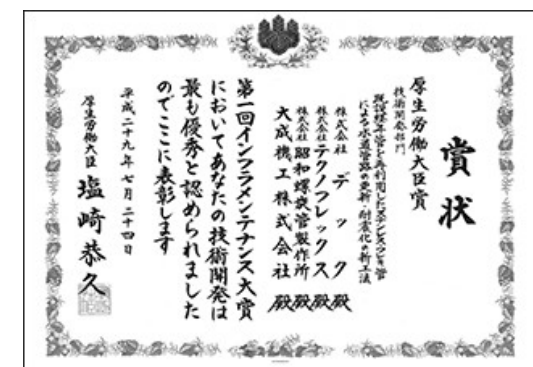 賞状
厚生労働大臣賞
技術開発部門
既設経年管を再利用したステンレス・フレキ管
による水道管路の更新・耐震化の新工法
株式会社 デック 殿
株式会社 テクノフレックス 殿
株式会社 昭和螺旋管製作所 殿
大成機工株式会社 殿
第一回インフラメンテナンス大賞
においてあなたの技術開発は
最も優秀と認められました
のでここに表彰します
平成二十九年七月二十四日
厚生労働大臣 塩崎恭久